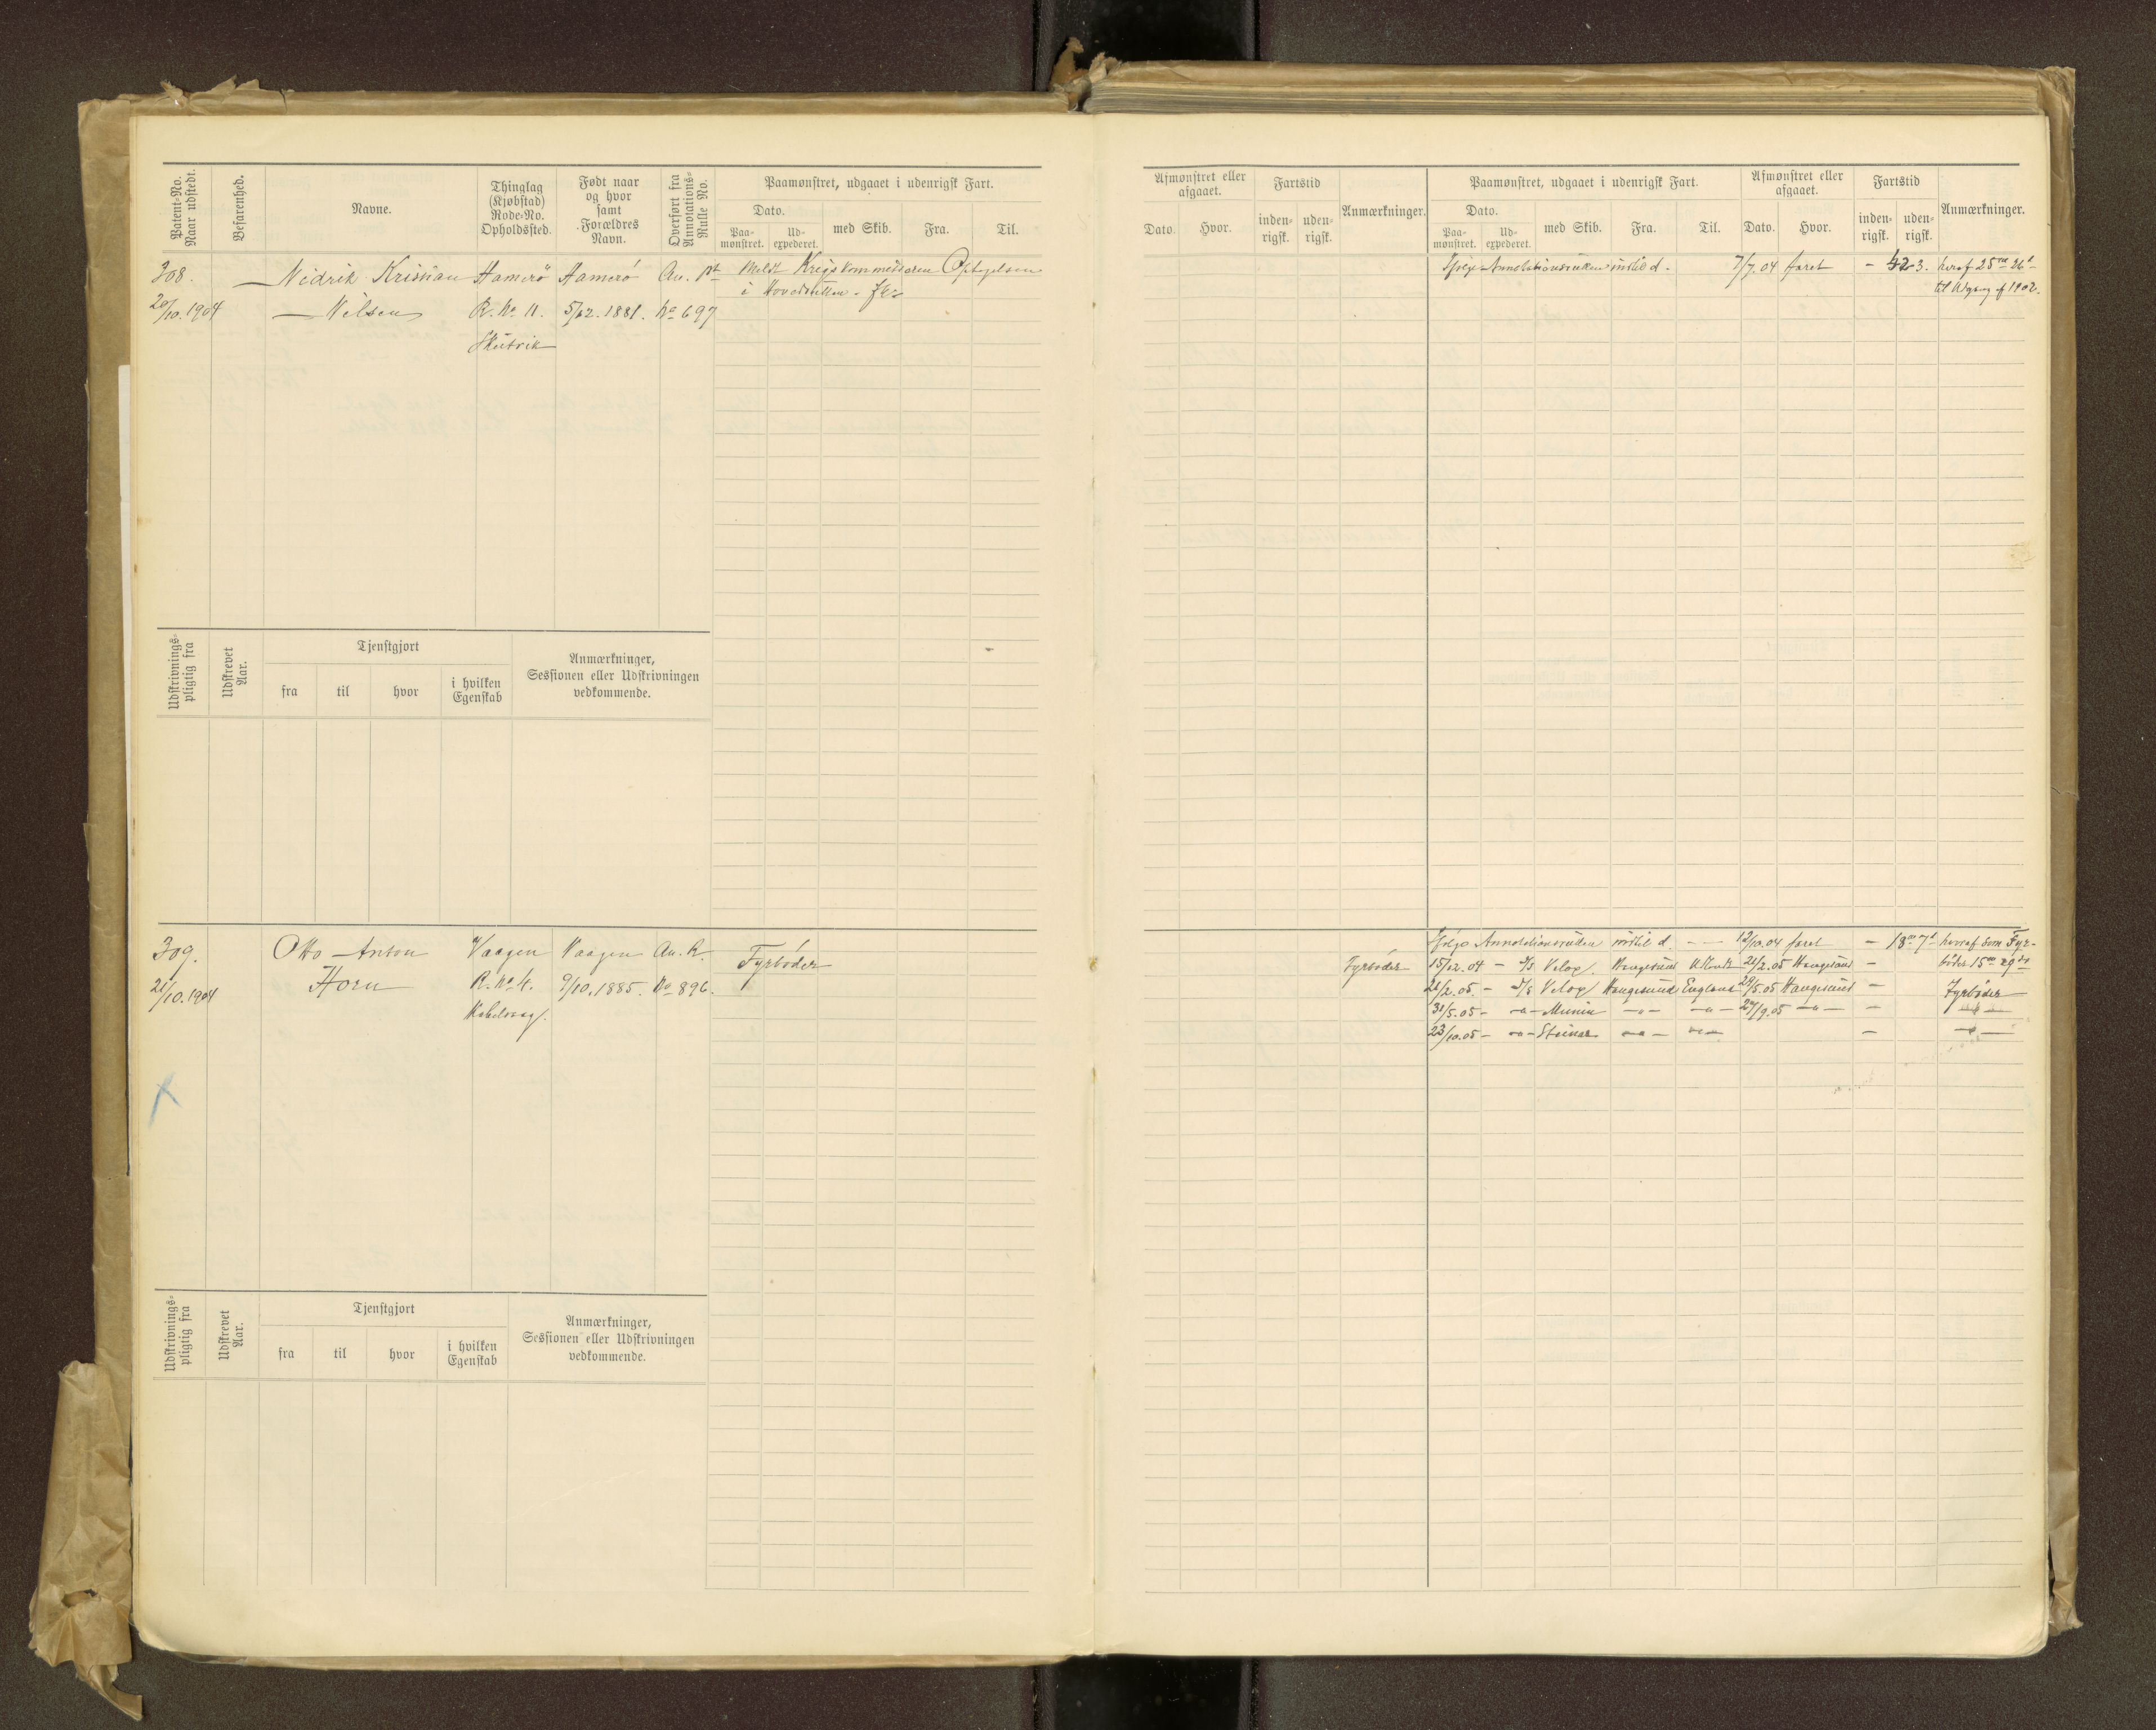 Patent-No. Naar udstedt.
Befarenhed.
Navne.
Thinglag (Kjøbstad) Rode-No. Opholdssted.
Født naar og hvor samt Forældres Navn.
Overført fra Annotations-Rulle No.
Paamønstret, udgaaet i udenrigsk Fart.
Dato.
Paa-mønstret.
Ud-expederet.
med Skib.
Fra.
Til.
308.
20/10.1904
Nidrik Krissian
Nilsen
Hamerö
R. No 11.
Skutvik
Hamerö
5/12.1881.
An. Rl
No 697
Meldt Krigskommissæren Optagelsen
i Hovedrullen.
Udskrivnings-pligtig fra
Udskrevet Aar.
Tjenstgjort
fra
til
hvor
i hvilken Egenskab
Anmærkninger, Sessionen eller Udskrivningen vedkommende.
309.
21/10.1904
Otto Anton
Horn
Vaagen
R. No 4.
Kabelvaag.
Vaagen
9/10.1885.
An. R.
No 896.
Fyrbøder
Udskrivnings-pligtig fra
Udskrevet Aar.
Tjenstgjort
fra
til
hvor
i hvilken Egenskab
Anmærkninger, Sessionen eller Udskrivningen vedkommende.
Afmønstret eller afgaaet.
Dato.
Hvor.
Fartstid
inden-rigsk.
uden-rigsk.
Anmærkninger.
Paamønstret, udgaaet i udenrigsk Fart.
Dato.
Paa-mønstret.
Ud-expederet.
med Skib.
Fra.
Til.
Afmønstret eller afgaaet.
Dato.
Hvor.
Fartstid
inden-rigsk.
uden-rigsk.
Anmærkninger.
Ifølge Annotationsrullen indtil d. 7/7.04 faret – 42 3. heraf 25 m 26 d
til Udgang af 1902.
Ifølge Annotationsrullen indtil d. – – 12/10.04 faret – 18 m 7 d hvoraf som Fyr-
Fyrbøder 15/12.04 – D/S Velox. Haugesund 21/2.05 Haugesund – bøder 15 m 29 d
21/2.05. – D/S Velox Haugesund England 29/5.05 Haugesund – Fyrbøder
31/5.05 – –„– Munin –„– –„– 27/9.05 –„– – –„–
23/10.05 – –„– Steinar –„– –„– – –„–